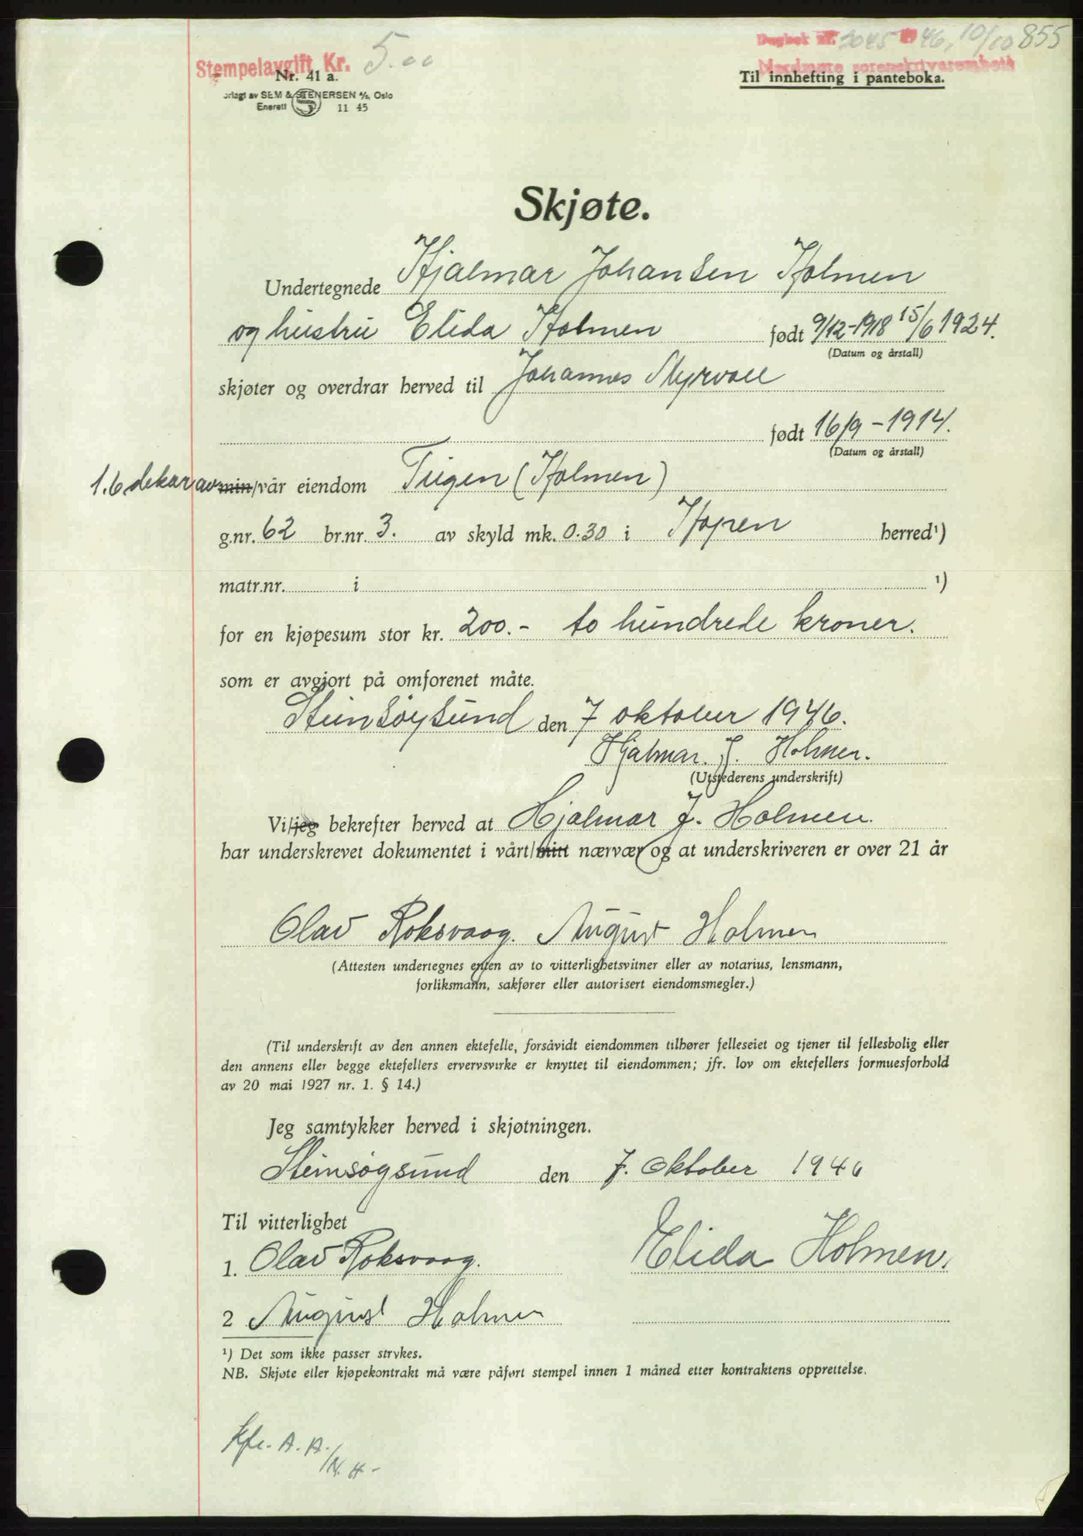 Dagbok nr. 2045 1946, 10/10 855
Stempelavgift Kr. 5.00
Nordmøre sorenskriverembete
Nr. 41 a.
Til innhefting i panteboka.
orlagt av SEM & STENERSEN A/S, Oslo
Enerett S 11 45
Skjøte.
Undertegnede Hjalmar Johansen Holmen
og hustru Elida Holmen født 9/12-1918 15/6 1924.
(Datum og årstall)
skjøter og overdrar herved til Johannes Myrvoll
født 16/9-1914.
(Datum og årstall)
1.6 dekar av min/vår eiendom Tugen (Holmen)
g.nr. 62 br.nr. 3. av skyld mk. 0.30 i Hopen herred¹)
matr.nr. i ¹)
for en kjøpesum stor kr. 200.- to hundrede kroner.
som er avgjort på omforenet måte.
Steinsøysund den 7 oktober 1946.
Hjalmar. J. Holmen.
(Utstederens underskrift)
Vi/jeg bekrefter herved at Hjalmar J. Holmen.
har underskrevet dokumentet i vårt/mitt nærvær og at underskriveren er over 21 år
Olav Roksvaag. August Holmen
(Attesten undertegnes enten av to vitterlighetsvitner eller av notarius, lensmann,
forliksmann, sakfører eller autorisert eiendomsmegler.)
(Til underskrift av den annen ektefelle, forsåvidt eiendommen tilhører felleseiet og tjener til fellesbolig eller
den annens eller begge ektefellers ervervsvirke er knyttet til eiendommen; jfr. lov om ektefellers formuesforhold
av 20 mai 1927 nr. 1. § 14.)
Jeg samtykker herved i skjøtningen.
Steinsøysund den 7. Oktober 1946
Til vitterlighet
1. Olav Roksvaag.
Elida Holmen.
2 August Holmen
¹) Det som ikke passer strykes.
NB. Skjøte eller kjøpekontrakt må være påført stempel innen 1 måned etter kontraktens opprettelse.
Kfr. A. A.
/N. H-